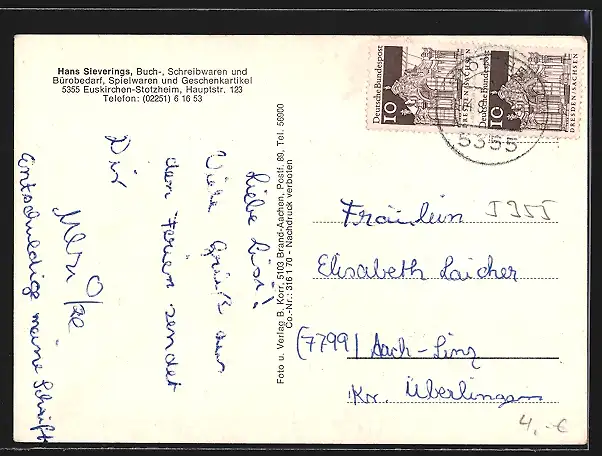 Hans Sieverings, Buch-, Schreibwaren und
Bürobedarf, Spielwaren und Geschenkartikel
5355 Euskirchen-Stotzheim, Hauptstr. 123
Telefon: (02251) 6 16 53
Liebe Lisi!
Viele Grüße aus
den Ferien sendet
Dir
Entschuldige meine Schrift
Foto u. Verlag B. Korr, 5103 Brand-Aachen, Postf. 80, Tel. 56900
Co.-Nr.: 316 1 70 - Nachdruck verboten
Deutsche Bundespost
10
DRESDEN/SACHSEN
Deutsche Bundespost
10
DRESDEN/SACHSEN
5355
Fräulein
5355
Elisabeth Laicher
(7799) Aach-Linz
Kr. Überlingen
4,-€